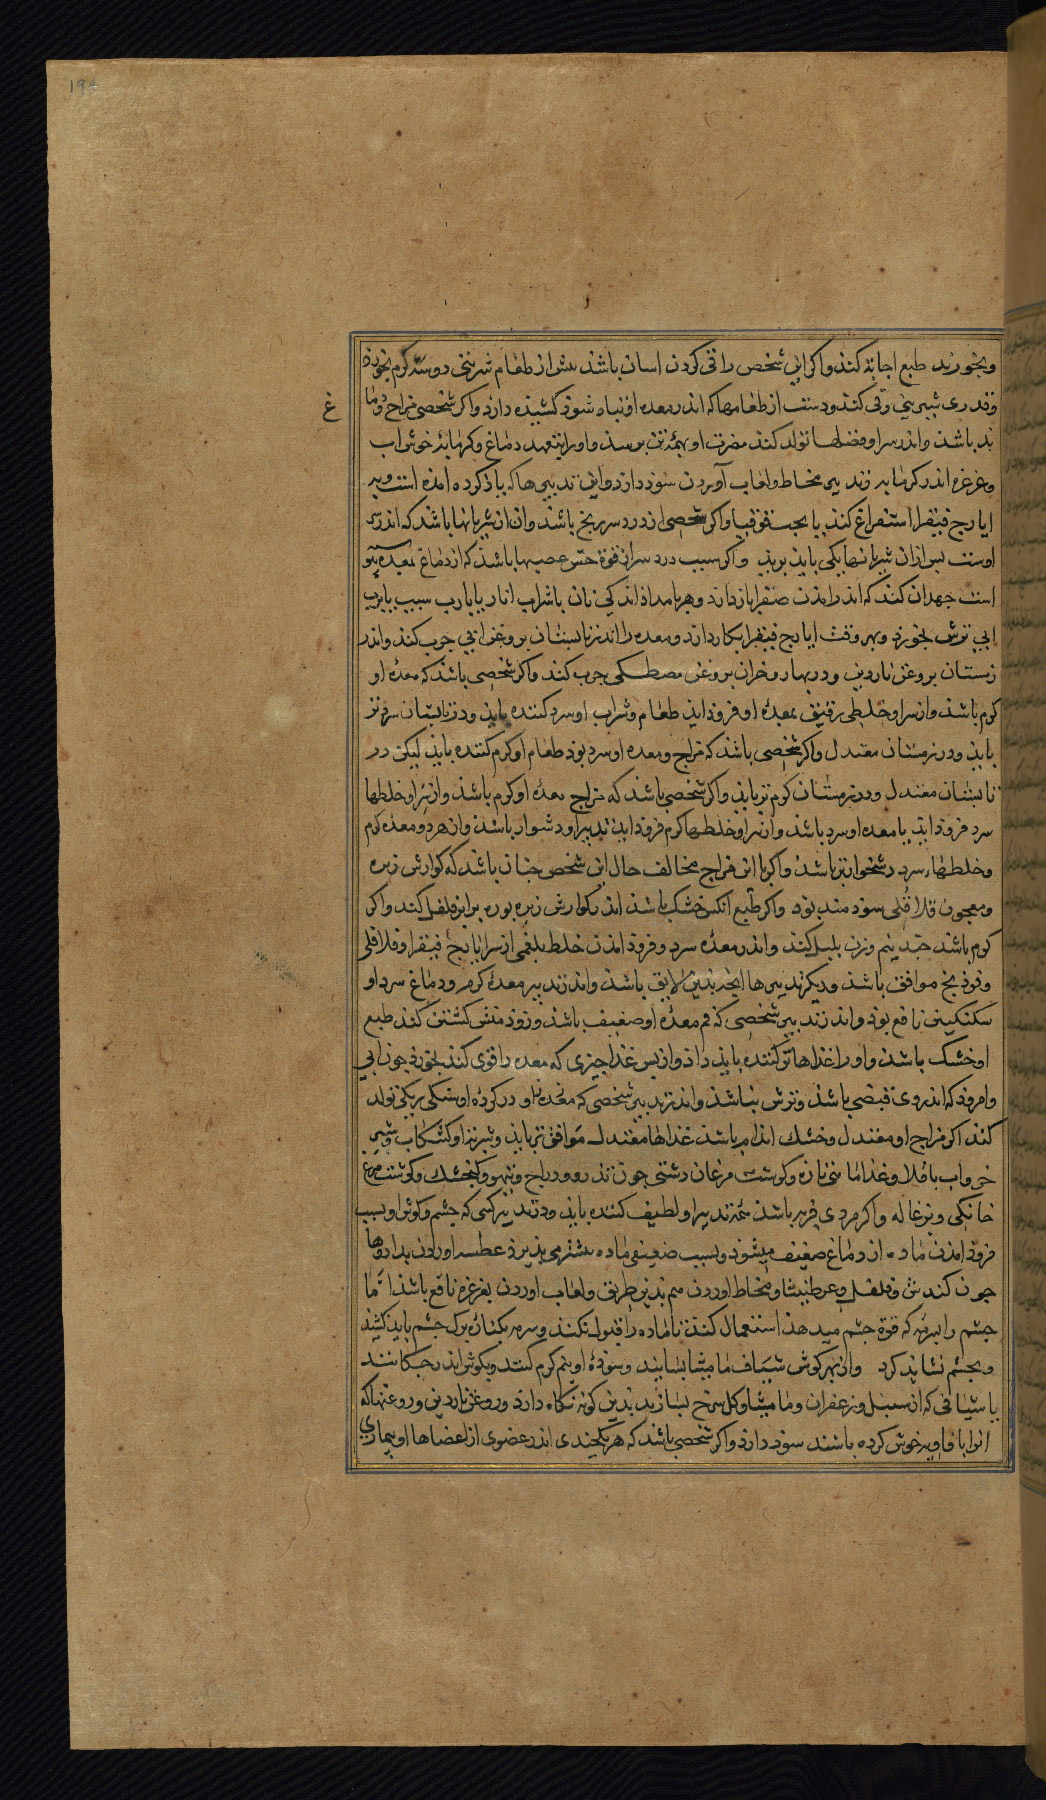 ۱۹۸
و بخورند طبع اجابة کند و اکر این شخص را قی کردن اسان باشد بیش از طعام شربتی دوسه کرم بخورد
و قدری شیرینی و قی کند و دست از طعامها که اندر معده او تباه شود کشیده دارد و اکر شخصی مزاج دماغ
بد باشد و اندر سر او فضلها تولد کند مضرت او بهمه تن برسد و او را بتعهد دماغ و کرمابهٔ خوش اب
و غرغره اندر کرمابه و تدبیر مخاط و لعاب آوردن سود دارد و این تدبیرها که یاذ کرده امده است و به
ایارج فیقرا استفراغ کند یا بحب قوقیا و اکر شخصی از درد سر برنج باشد و ان از شریانها باشد که اندر سر
اوست بس از ان شریانها یکی باید برید و اکر سبب درد سر از قوة حس عصبها باشد که از دماغ بمعده بیوسته
است جهد ان کند که اندر امدن صفرا باز دارد و هر بامداد اندکی نان با شراب انار یا با رب سیب یا با رب
ابی ترش بخورد و بهر وقت ایارج فیقرا بکار دارد و معده را اندر تابستان بروغن ابی جرب کند و اندر
زمستان بروغن ناردین و در بهار و خزان بروغن مصطکی جرب کند و اکر شخصی باشد که معدهٔ او
کرم باشد و از سر او خلطی رقیق بمعدهٔ او فرود اید طعام و شراب او سرد کننده باید و در تابستان سردتر
باید و در زمستان معتدل و اکر شخصی باشد که مزاج و معده او سرد بود طعام او کرم کننده باید لیکن در
تابستان معتدل و در زمستان کرم تر باید و اکر شخصی باشد که مزاج معدهٔ او کرم باشد و از سر او خلطها
سرد فرود اید یا معده او سرد باشد و از سر او خلطها کرم فرود اید تدبیر او دشوار باشد و از هر دو معده کرم
و خلطهاء سرد دشخوارتر باشد و اکر با این مزاج مخالف حال این شخص جنان باشد که کوارش زیره
و معجون قلاقلی سود مند بود و اکر طبع انکس خشک باشد اندر کوارش زیره بوره برابر فلفل کند و اکر
کرم باشد جند نیم وزن بلبل کند و اندر معدهٔ سرد و فرود امدن خلط بلغمی از سر ایارج فیقرا و قلاقلی
و فوذنج موافق باشد و دیکر تدبیرها انجه بدین لایق باشد و اندر تدبیر معدهٔ کرم و دماغ سرد او
سکنکبین نافع بود و اندر تدبیر شخصی که فم معدهٔ او ضعیف باشد و زود منش کشتن کند طبع
او خشک باشد و او را غذاها تر کننده باید داد و از بس غذا جیزی که معده را قوی کند بخورد جون ابی
و امرود که اندر وی قبضی باشد و ترش نباشد و اندر تدبیر شخصی که معده او در کرده او سنکی ریکی تولد
کند اکر مزاج او معتدل و خشک اندام باشد غذاها معتدل موافق تر باید و شیر بز او کشکاب و شیر
خر و اب باقلا و غذاها نی تازه و کوشت مرغان دشتی جون تذرو و دراج و تیهو و کنجشک و کوشت مرغ
خانکی و بزغاله و اکر مردی فربه باشد همه تدبیر او لطیف کننده باید و در تدبیر کسی که جشم و کوش او بسبب
فرود امدن ماده از دماغ ضعیف میشود و بسبب ضعیفی ماده بیشتر می بذیرد عطسه اوردن بداروها
جون کندش و فلفل و عرطنیثا و مخاط اوردن هم بدین طریق و لعاب اوردن بغرغره نافع باشد اما
جشم را سرمه که قوة جشم میدهد استعمال کند تا ماده را قبول نکند و سرمه بکنارهٔ برک جشم باید کشید
و بجشم نشاید کرد و از بهر کوش شیاف مامیثا بسایند و سوده او نیم کرم کند و بکوش اندر جکانند
یا شیافی که از سنبل و زعفران و مامیثا و کل سرخ بسازند بدین کونه نکاه دارد و روغن ناردین و روغنها که
انرا با فاویه خوش کرده باشند سود دارد و اکر شخصی باشد که هر یکجندی اندر عضوی از اعضاها او بیماری
غ